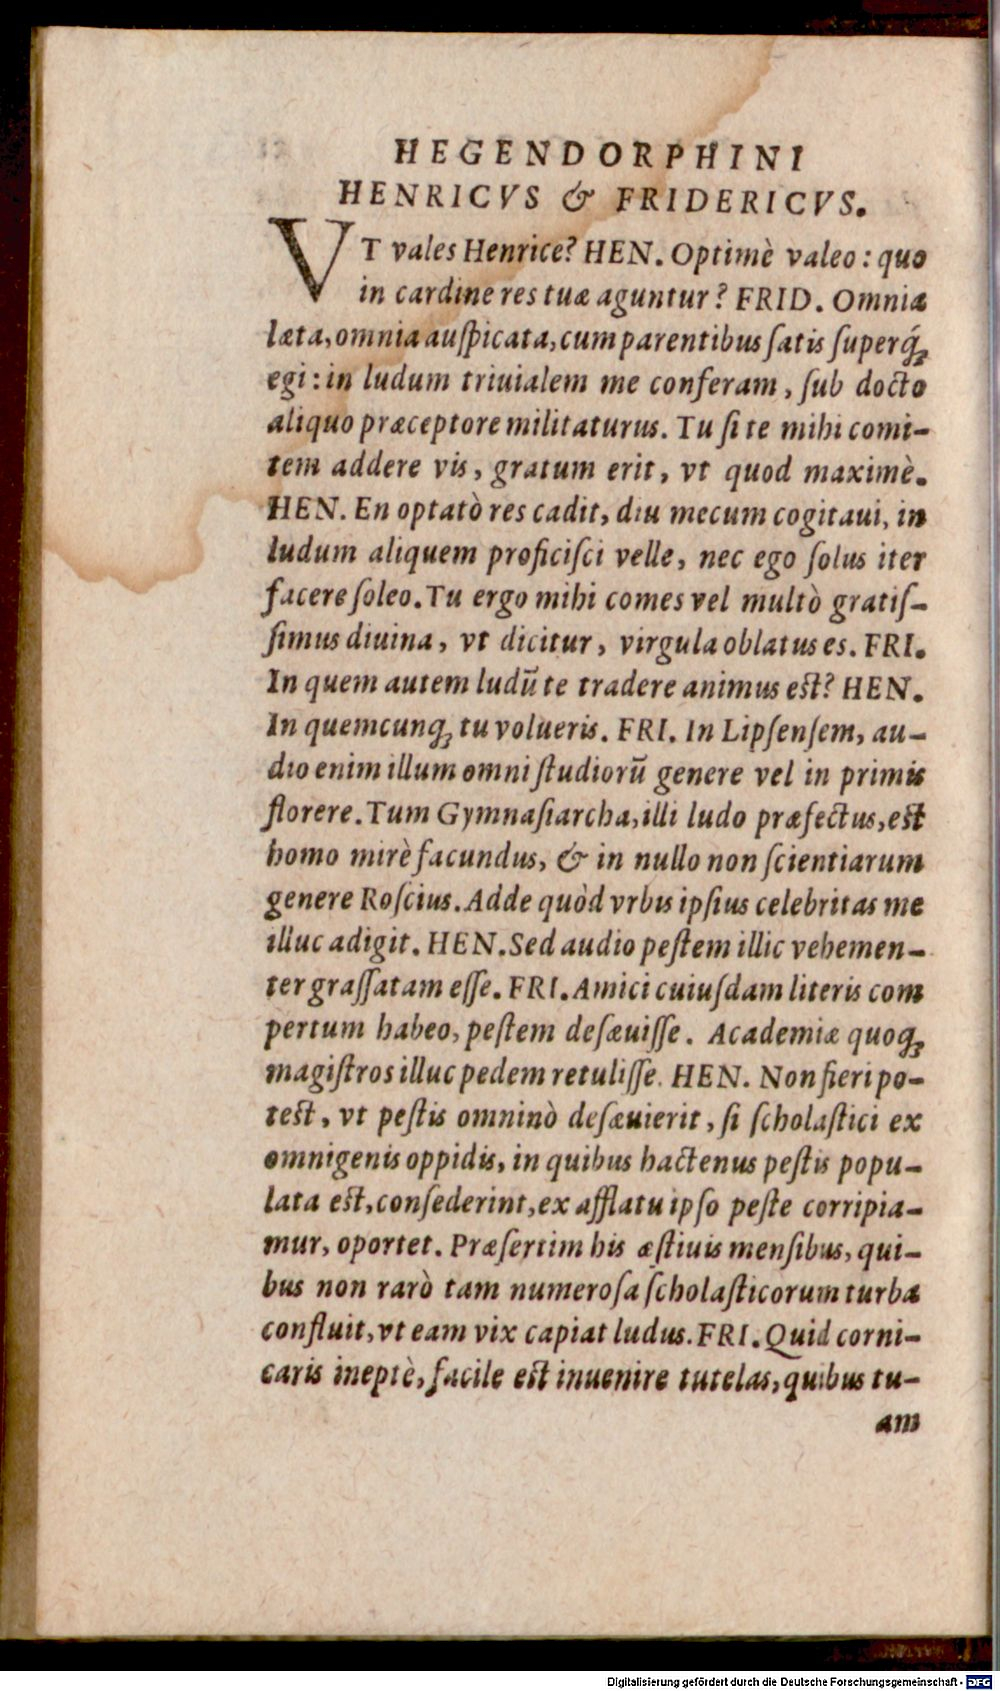 HEGENDORPHINI
HENRICVS & FRIDERICVS.
VT vales Henrice? HEN. Optimè valeo: quo
in cardine res tuæ aguntur? FRID. Omnia
læta, omnia auſpicata, cum parentibus ſatis ſuperq́ꝫ
egi: in ludum triuialem me conferam, ſub docto
aliquo præceptore militaturus. Tu ſi te mihi comi-
tem addere vis, gratum erit, vt quod maximè.
HEN. En optatò res cadit, diu mecum cogitaui, in
ludum aliquem proficiſci velle, nec ego ſolus iter
facere ſoleo. Tu ergo mihi comes vel multò gratiſ-
ſimus diuina, vt dicitur, virgula oblatus es. FRI.
In quem autem ludū te tradere animus est? HEN.
In quemcunqꝫ tu volueris. FRI. In Lipſenſem, au-
dio enim illum omni ſtudiorū genere vel in primis
florere. Tum Gymnaſiarcha, illi ludo præfectus, est
homo mirè facundus, & in nullo non ſcientiarum
genere Roſcius. Adde quòd vrbis ipſius celebritas me
illuc adigit. HEN. Sed audio peſtem illic vehemen-
ter graſſatam eſſe. FRI. Amici cuiuſdam literis com
pertum habeo, peſtem deſæuiſſe. Academiæ quoqꝫ
magiſtros illuc pedem retuliſſe. HEN. Non fieri po-
test, vt peſtis omninò deſæuierit, ſi ſcholaſtici ex
omnigenis oppidis, in quibus hactenus peſtis popu-
lata est, conſederint, ex afflatu ipſo peſte corripia-
mur, oportet. Præſertim his æſtiuis menſibus, qui-
bus non rarò tam numeroſa ſcholaſticorum turba
confluit, vt eam vix capiat ludus. FRI. Quid corni-
caris ineptè, facile est inuenire tutelas, quibus tu-
am
Digitalisierung gefördert durch die Deutsche Forschungsgemeinschaft - DFG